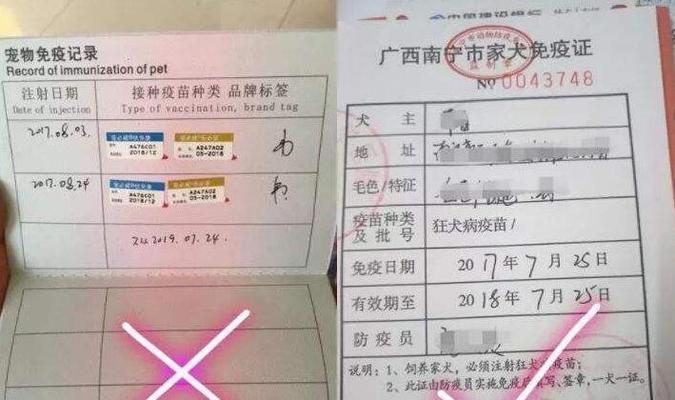 宠物免疫记录
Record of immunization of pet
注射日期
Date of injection
接种疫苗种类 品牌标签
Type of vaccination, brand tag
2017.08.03.
A476C01
2018/12
A247A02
05-2018
2017.08.24
A476C01
2018/12
A247A02
05-2018
2019.07.24.
广西南宁市家犬免疫证
监制章
№ 0043748
犬主
地址
毛色/特征
疫苗种类及批号
狂犬病疫苗/
免疫日期
2017年7月25日
有效期至
2018年7月25日
防疫员
说明：1、饲养家犬，必须注射狂犬疫苗；
2、此证由防疫员实施免疫后填写、签章，一犬一证。